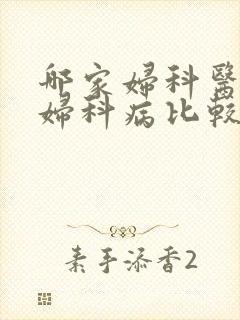 那家婦科醫
婦科病比較
素手添香2